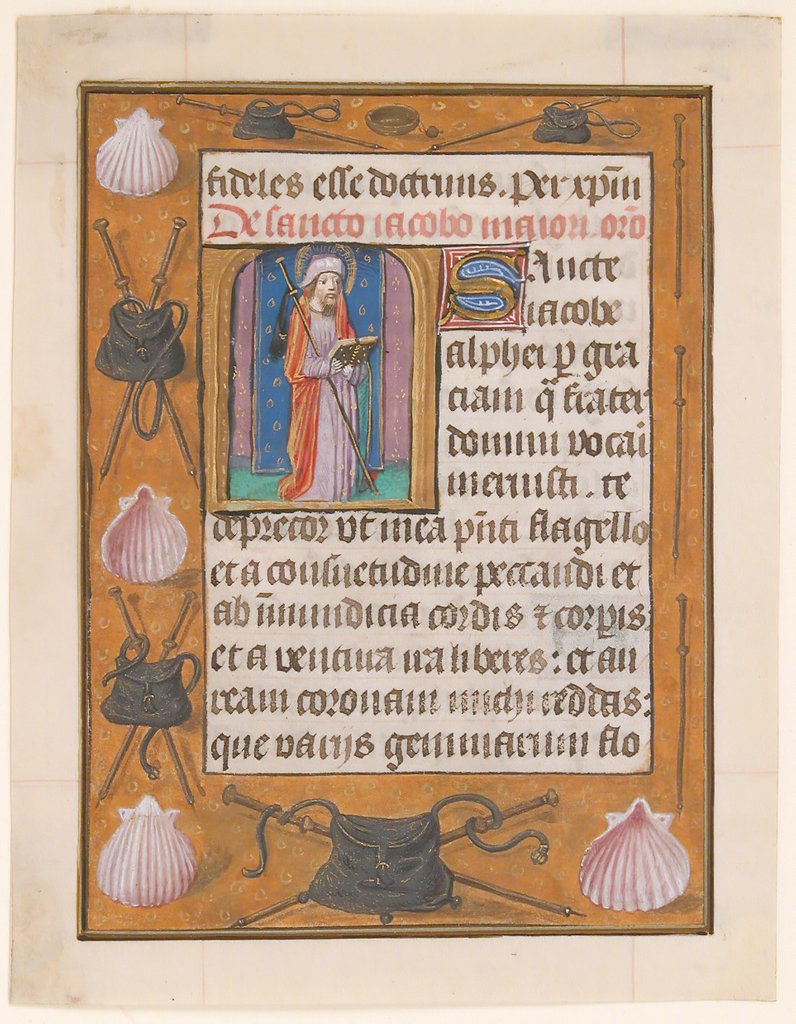 fideles esse doctrinis. Per xp̄m
De sancto iacobo maiori or̄o
Sancte
iacobe
alphei p̲ gra
ciam q̄ frater
domini vocai
meruisti. te
deprecor vt mea pn̄ti flagello
et a consuetudine peccandi et
ab īmundicia cordis ⁊ corpis:
et a ventura ira liberes: et au
ream coronam michi reddas:
que varijs gemmarum flo